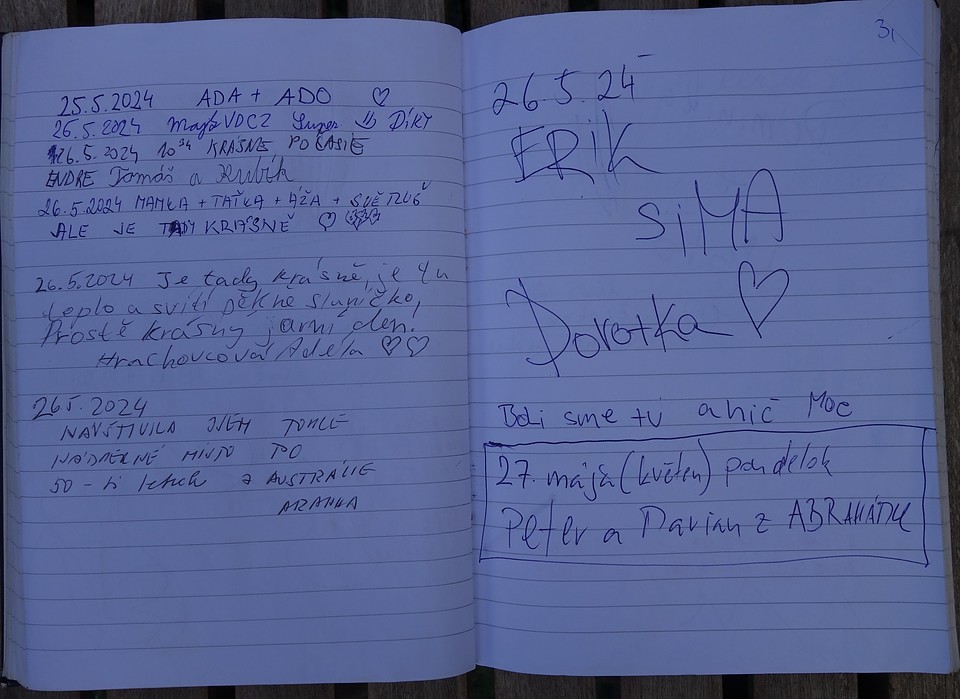 25.5.2024 ADA + ADO ♡
26.5.2024 VDCZ Super DÍKY
26.5.2024 10³⁴ KRÁSNÉ POČASIE
ENDRE Tomáš a Kubík
26.5.2024 MAMKA + TAŤKA + ÁŽA +
ALE JE TADY KRÁSNĚ ♡
26.5.2024 Je tady krásně, je tu
teplo a svítí pěkně sluníčko,
Prostě krásný jarní den.
Hrachovcová Adéla ♡ ♡
26.5.2024
NAVŠTÍVILA JSEM TOHLE
NÁDHERNÉ MÍSTO PO
50-ti letech z AUSTRÁLIE
31
26.5.24
ERIK
SiMA
Dorotka ♡
Boli sme tu a nič Moc
27. mája (květen) pondelok
Peter a Darian z ABRAHÁMU